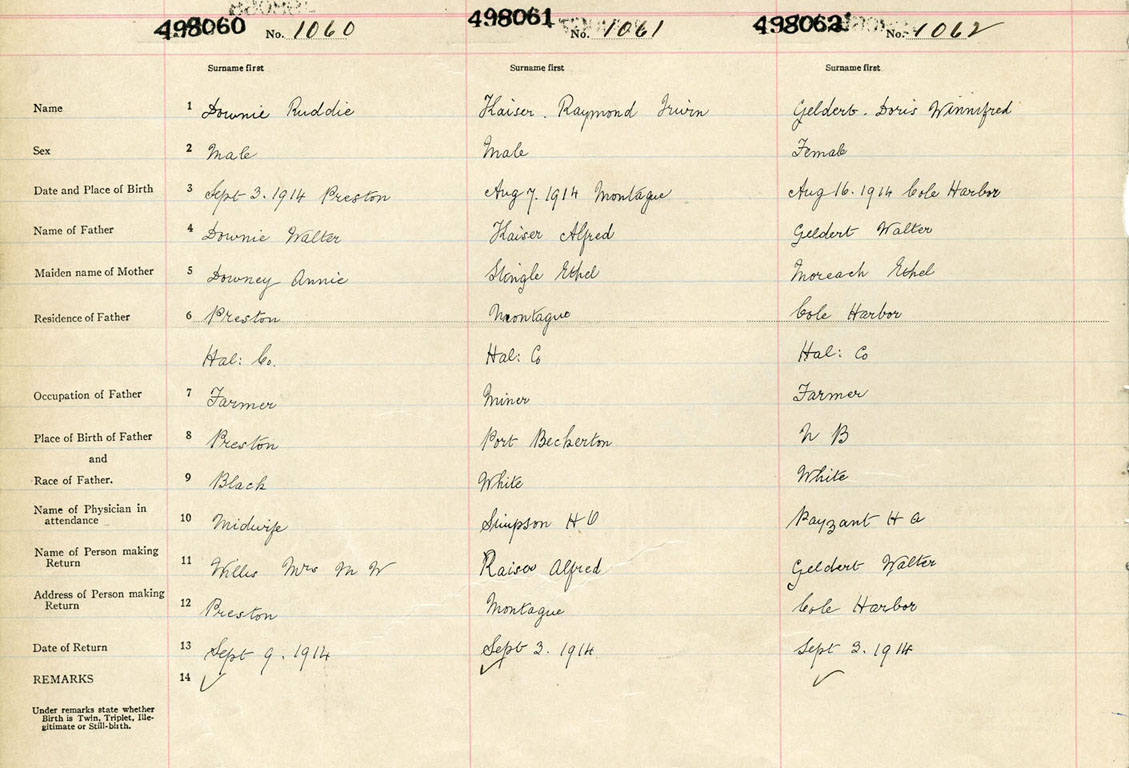 498060 No. 1060 498061 No. 1061 498062 No. 1062
Surname first Surname first Surname first
Name 1 Downie Ruddie Kaiser. Raymond Irwin Geldert. Doris Winnifred
Sex 2 Male Male Female
Date and Place of Birth 3 Sept 3. 1914 Preston Aug 7. 1914 Montague Aug 16. 1914 Cole Harbor
Name of Father 4 Downie Walter Kaiser Alfred Geldert Walter
Maiden name of Mother 5 Downey Annie Slingle Ethel Ethel
Residence of Father 6 Preston Montague Cole Harbor
Hal: Co. Hal: Co Hal: Co
Occupation of Father 7 Farmer Miner Farmer
Place of Birth of Father 8 Preston Port Beckerton N B
and
Race of Father. 9 Black White White
Name of Physician in
attendance 10 Midwife Simpson H Payzant H A
Name of Person making
Return 11 Willis Mrs M W Alfred Geldert Walter
Address of Person making
Return 12 Preston Montague Cole Harbor
Date of Return 13 Sept 9. 1914 Sept 3. 1914 Sept 3. 1914
REMARKS 14 ✓ ✓ ✓
Under remarks state whether
Birth is Twin, Triplet, Ille-
gitimate or Still-birth.